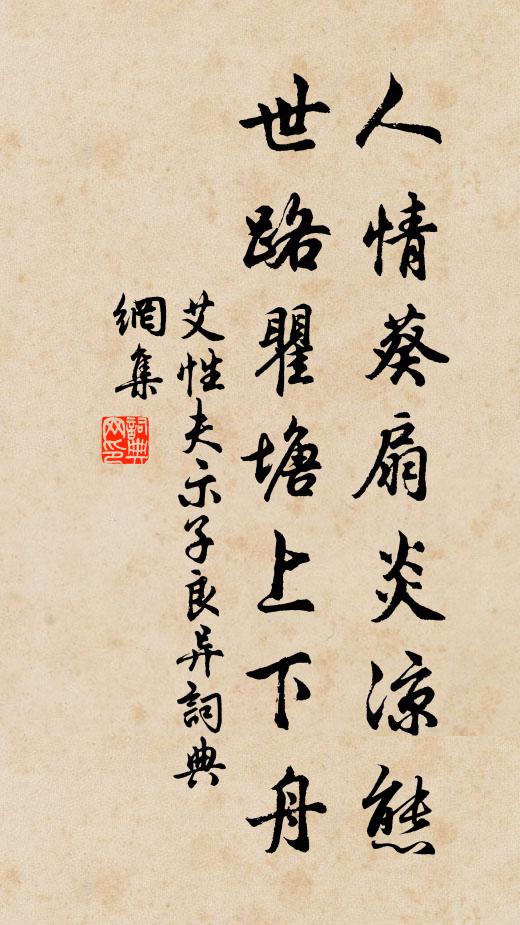 人情葵扇炎涼態
世路瞿塘上下舟
艾性夫示子良异詞典
網集
詞典
网印